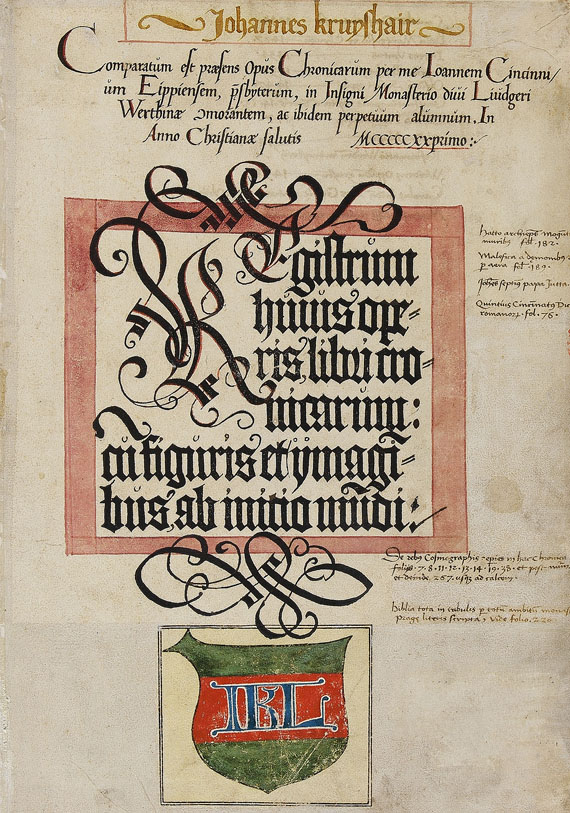 Johannes kruyshair
Comparatum est præsens Opus Chronicarum per me Ioannem Cincinni
um Lippiensem, p̃sbyterum, in Insigni Monasterio diui Luidgeri
Werthinæ ꝯmorantem, ac ibidem perpetuum alumnum. In
Anno Christianæ salutis MCCCCCXXprimo:
Registrum
huius ope-
ris, libri cro-
nicarum:
cũ figuris et ymagi-
bus, ab initio mũdi:
Hatto archiep̃s
fol. 182.
Malefica a demonibus
p aera fol. 189.
Joh̃es septiꝰ papa Jutta.
Quintius Cincinatꝰ
romanorꝝ . fol. 76.
De rebꝰ Cosmographie in hac Chronica
folijs . 7. 8. 11. 12. 13. 14. 19. 38. et post
et deinde, 267. usqꝫ ad calcem.
Biblia tota in p totũ ambitũ
Prage literis scripta, vide folio, 220
IKL